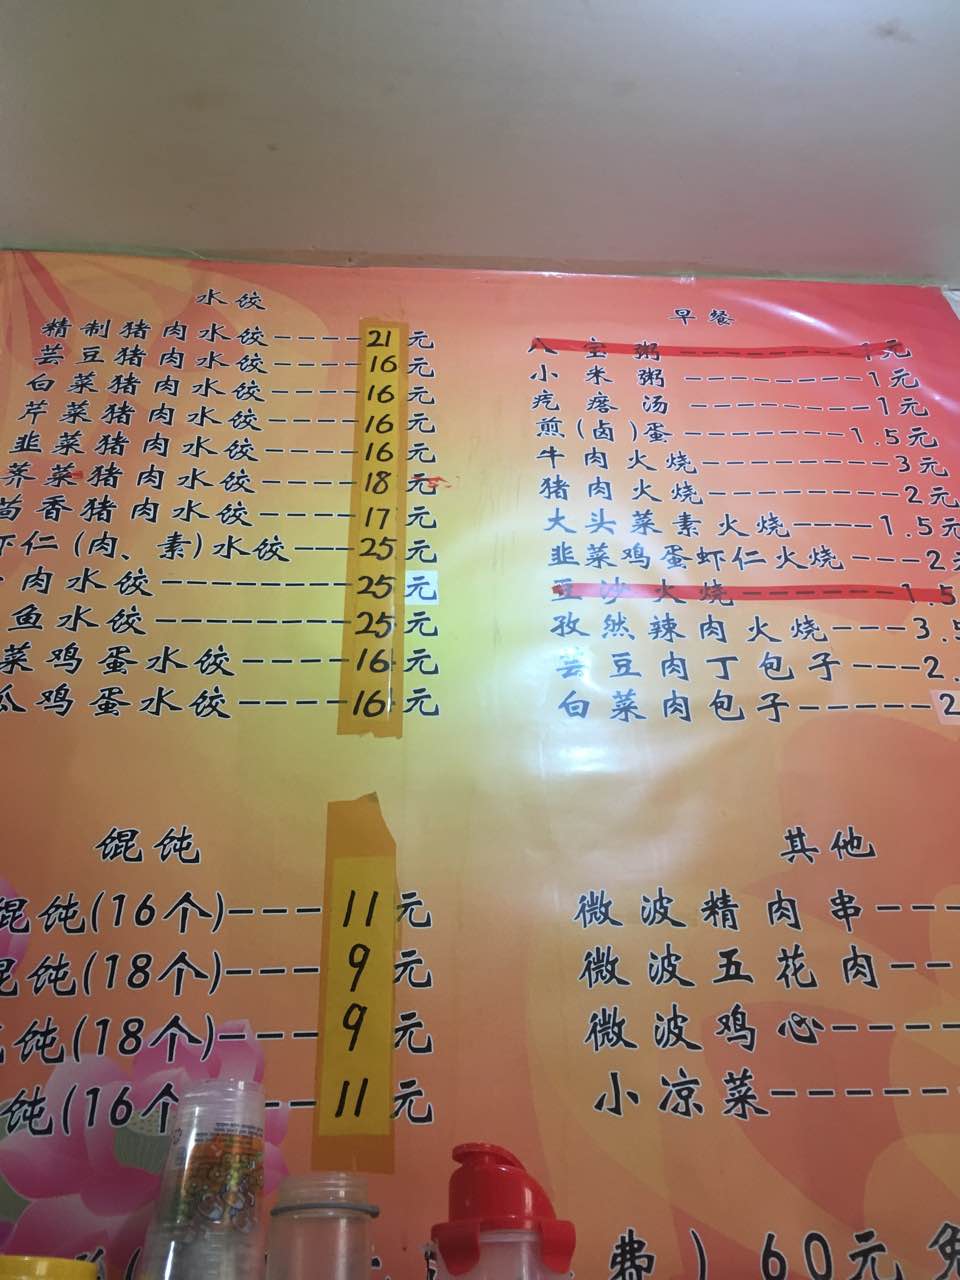 水饺
精制猪肉水饺----21元
芸豆猪肉水饺----16元
白菜猪肉水饺----16元
芹菜猪肉水饺----16元
韭菜猪肉水饺----16元
荠菜猪肉水饺----18元
茴香猪肉水饺----17元
虾仁(肉、素)水饺---25元
肉水饺--------25元
鱼水饺--------25元
菜鸡蛋水饺----16元
瓜鸡蛋水饺----16元
早餐
八宝粥----------1元
小米粥---------1元
疙瘩汤---------1元
煎(卤)蛋-------1.5元
牛肉火烧--------3元
猪肉火烧--------2元
大头菜素火烧----1.5元
韭菜鸡蛋虾仁火烧---2元
豆沙火烧-------1.5
孜然辣肉火烧---3.5
芸豆肉丁包子---2.
白菜肉包子-----2
馄饨
馄饨(16个)---11元
馄饨(18个)---9元
饨(18个)---9元
饨(16个)---11元
其他
微波精肉串---
微波五花肉--
微波鸡心----
小凉菜------
费)60元免